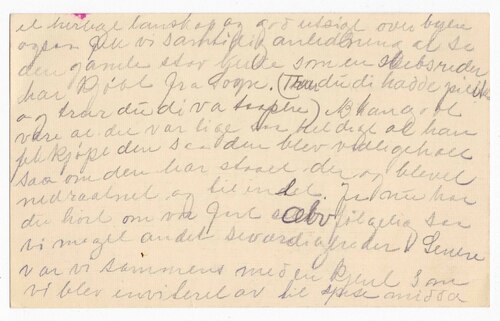 et herlige lanskap og god utsigt over byen
ogsaa fik vi samtidig anledning at se
den gamle stav kirke som en skibsreder
har kjøbt fra Sogn. (Tror du di hadde
og tror du di va ) Mangodt
være at der var lige saa heldige at han
fik kjøpe den saa den blev vedligeholt
saa om den har staaet der og blevet
nedraadnet og tilende. Ja nu har
du hørt om vor tur følgelig saa
vi meget andet seværdigheder. Senere
var vi sammens med en kjent som
vi blev inviteret av til spise midda